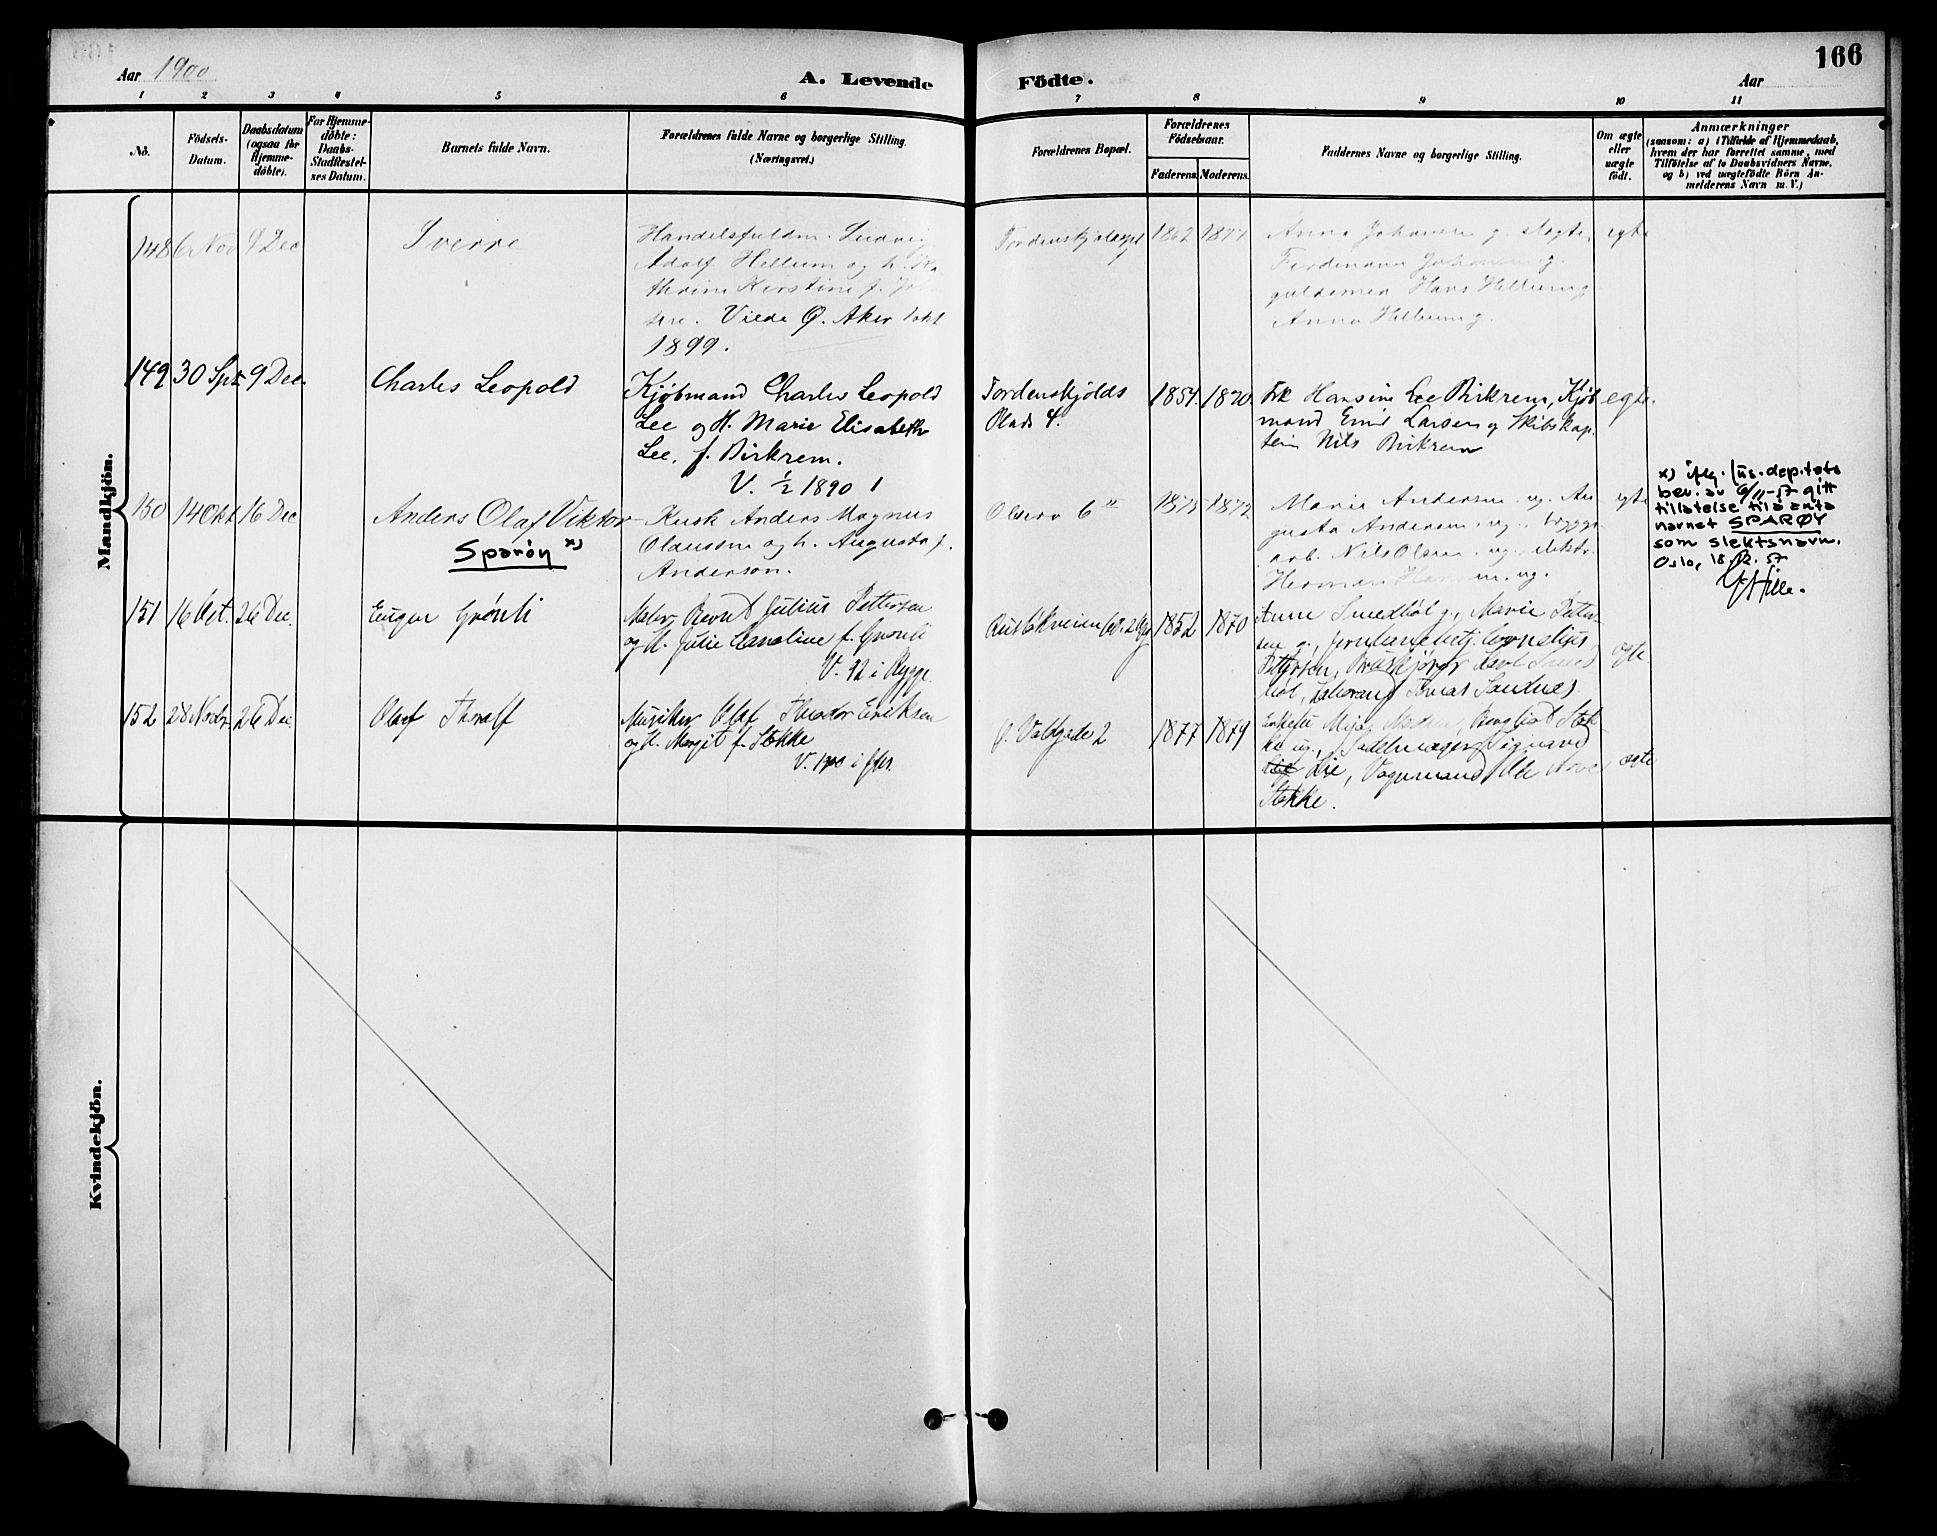 166
Aar 1900
A. Levende Födte.
Aar
1 2 3 4 5 6 7 8 9 10 11
No.
Födsels-
Datum.
Daabsdatum
(ogsaa for
Hjemme-
döbte).
For Hjemme-
döbte:
Daabs-
Stadfæstel-
ses Datum.
Barnets fulde Navn.
Forældrenes fulde Navne og borgerlige Stilling.
(Næringsvei.)
Forældrenes Bopæl.
Forældrenes
Födselsaar.
Faderens.
Moderens.
Faddernes Navne og borgerlige Stilling.
Om ægte
eller
uægte
födt.
Anmærkninger
(saasom: a) i Tilfælde af Hjemmedaab,
hvem der har forrettet samme, med
Tilföielse af to Daabsvidners Navne,
og b) ved uægtefödte Börn An-
melderens Navn m. V.)
Mandkjön.
148 6 Nov 9 Dec
Sverre
Handelsfuldm. Ludvig
Adolf Hellum og h. Ka
thrine Kirstine f. Joh
sen. Viede Ø. Aker 1 okt
1899.
1862 1877
Anna Johansen g.
Ferdinand Johansen g.
guldsmed Hans Hellum g
Anna Hellum g.
egte
149 30 Spt. 9 Dec.
Charles Leopold
Kjøbmand Charles Leopold
Lee og H. Marie Elisabeth
Lee, f. Birkrem.
V. 1/2 1890
Tordenskjolds
Plads 4.
1854. 1870.
Frk Hansine Lee Birkrem, Kjøb
mand Emil Larsen og Skibskap.
tein Nils Birkrem
egte.
150 14 Okt 16 Dec
Anders Olaf Viktor
Sparøy x)
Kusk Anders Magnus
Olaussen og h. Augusta f.
Anderson.
1875 1872
Marie Andersen ug. Au
gusta Andersen, ug., brygge
arb. Nils Olsen, ug. elektr.
Herman Hansen, ug.
egte
x) iflg. Jus.dep.tets
bev. av 6/11-57 gitt
tillatelse til å anta
navnet SPARØY
som slektsnavn.
Oslo, 18.12.57
151 16 Oct. 26 Dec.
Eugen Grönli
Maler Bernt Julius Pettersen
og H. Julie Caroline f. Grönli
V. 92 i Rygge
1852 1870
Anne Smedböl g., Marie Petter-
sen g., Jernbanebetj. Cornelius
Pettersen,
böl,
egte
152 28 Novbr. 26 Dec.
Olaf Thoralf
Musiker Olaf Theodor Eriksen
og H. Margit f. Stokke
V. 1900 i
1877 1879
Sadelmager Sigvard
Lie, Vognmand Ole
Stokke.
ægte
Kvindekjön.